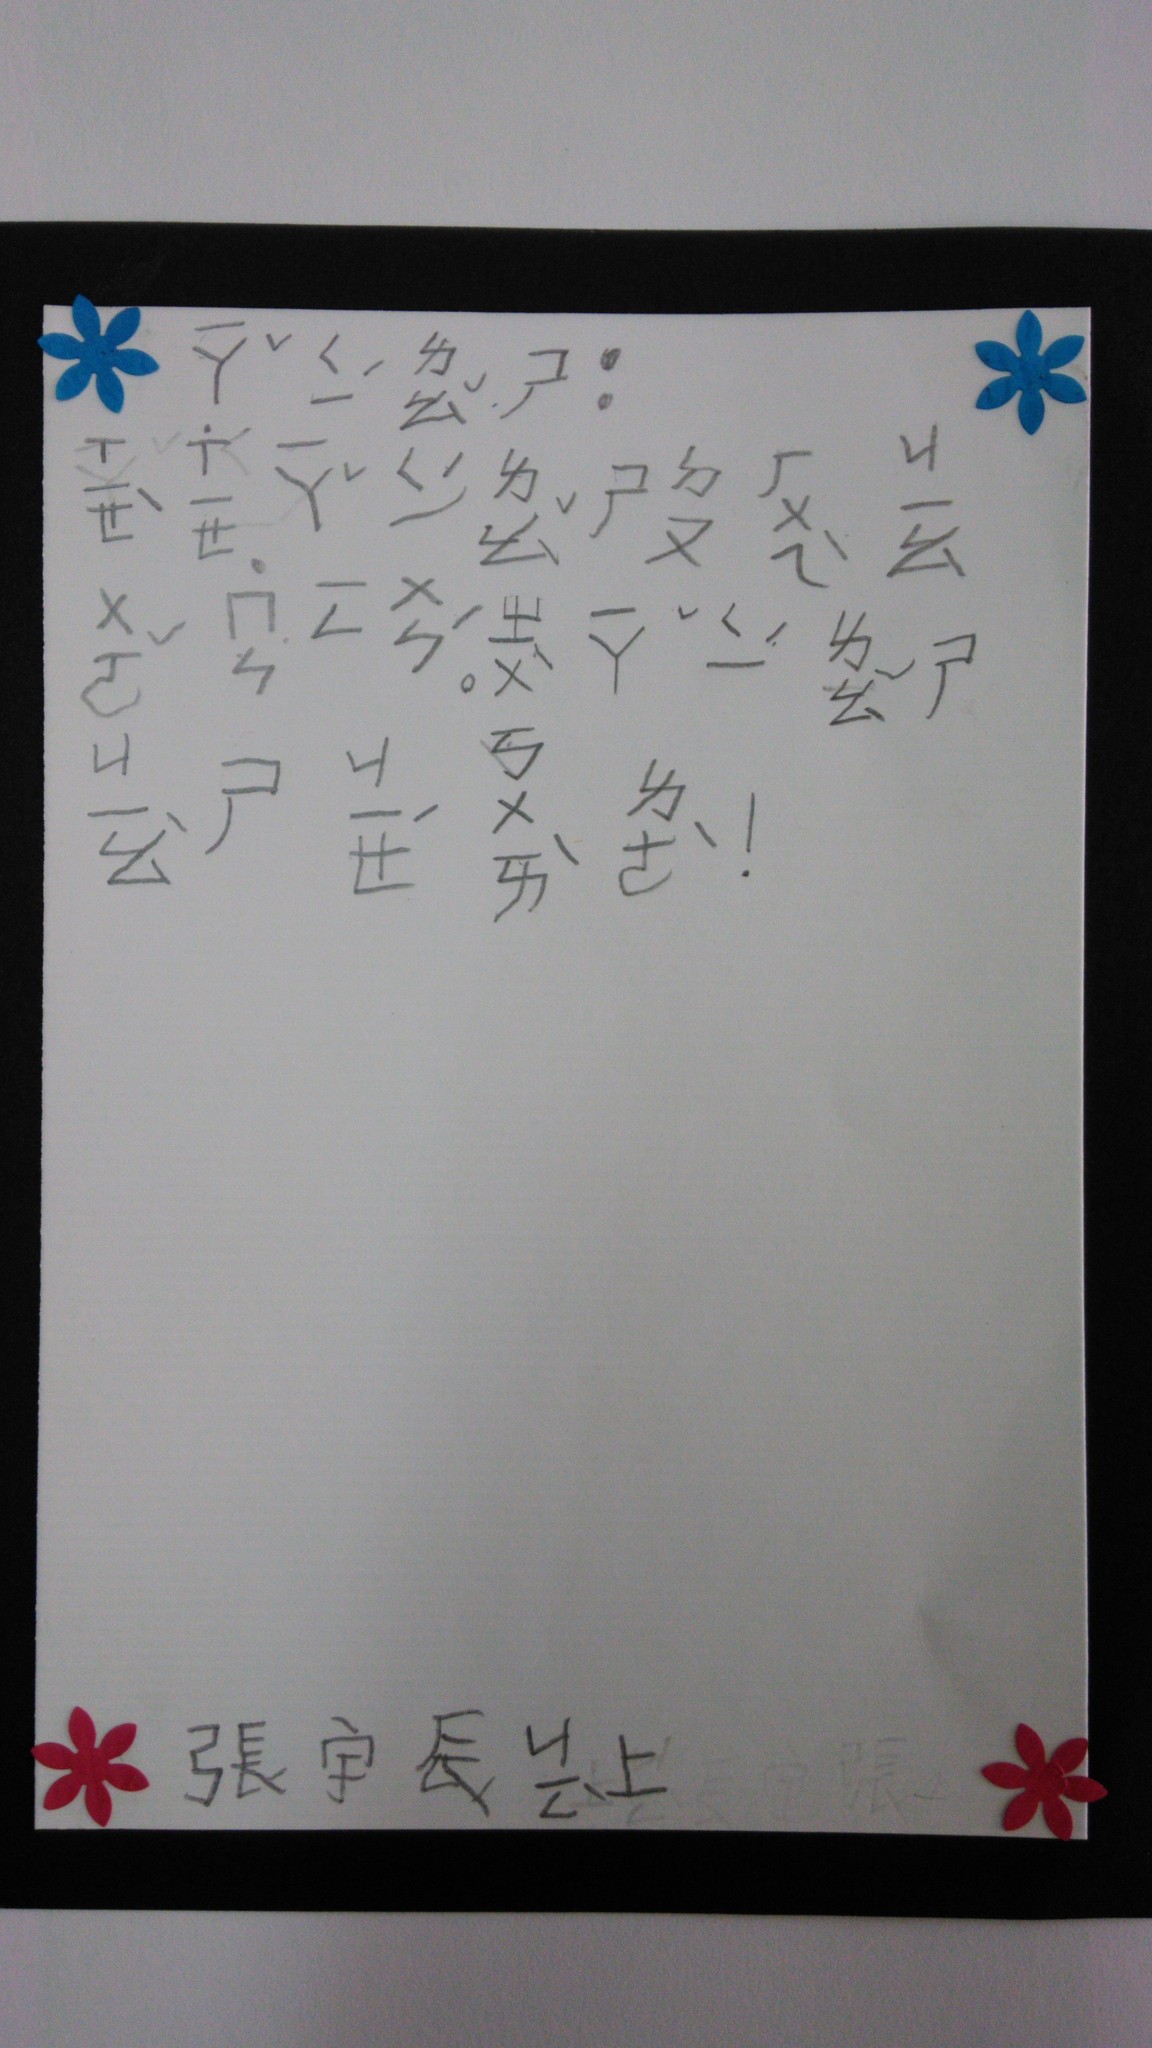 ㄧㄚˇ ㄑㄧˊ ㄌㄠˇ ㄕ：
ㄒㄧㄝˋ ㄒㄧㄝ˙ ㄧㄚˇ ㄑㄧˊ ㄌㄠˇ ㄕ ㄉㄡ ㄏㄨㄟˋ ㄐㄧㄠ
ㄨㄛˇ ㄇㄣ˙ ㄧㄥ ㄨㄣˊ。ㄓㄨˋ ㄧㄚˇ ㄑㄧˊ ㄌㄠˇ ㄕ
ㄐㄧㄠˋ ㄕ ㄐㄧㄝˊ ㄎㄨㄞˋ ㄌㄜˋ！
張宇長ㄐㄧㄥˋ上